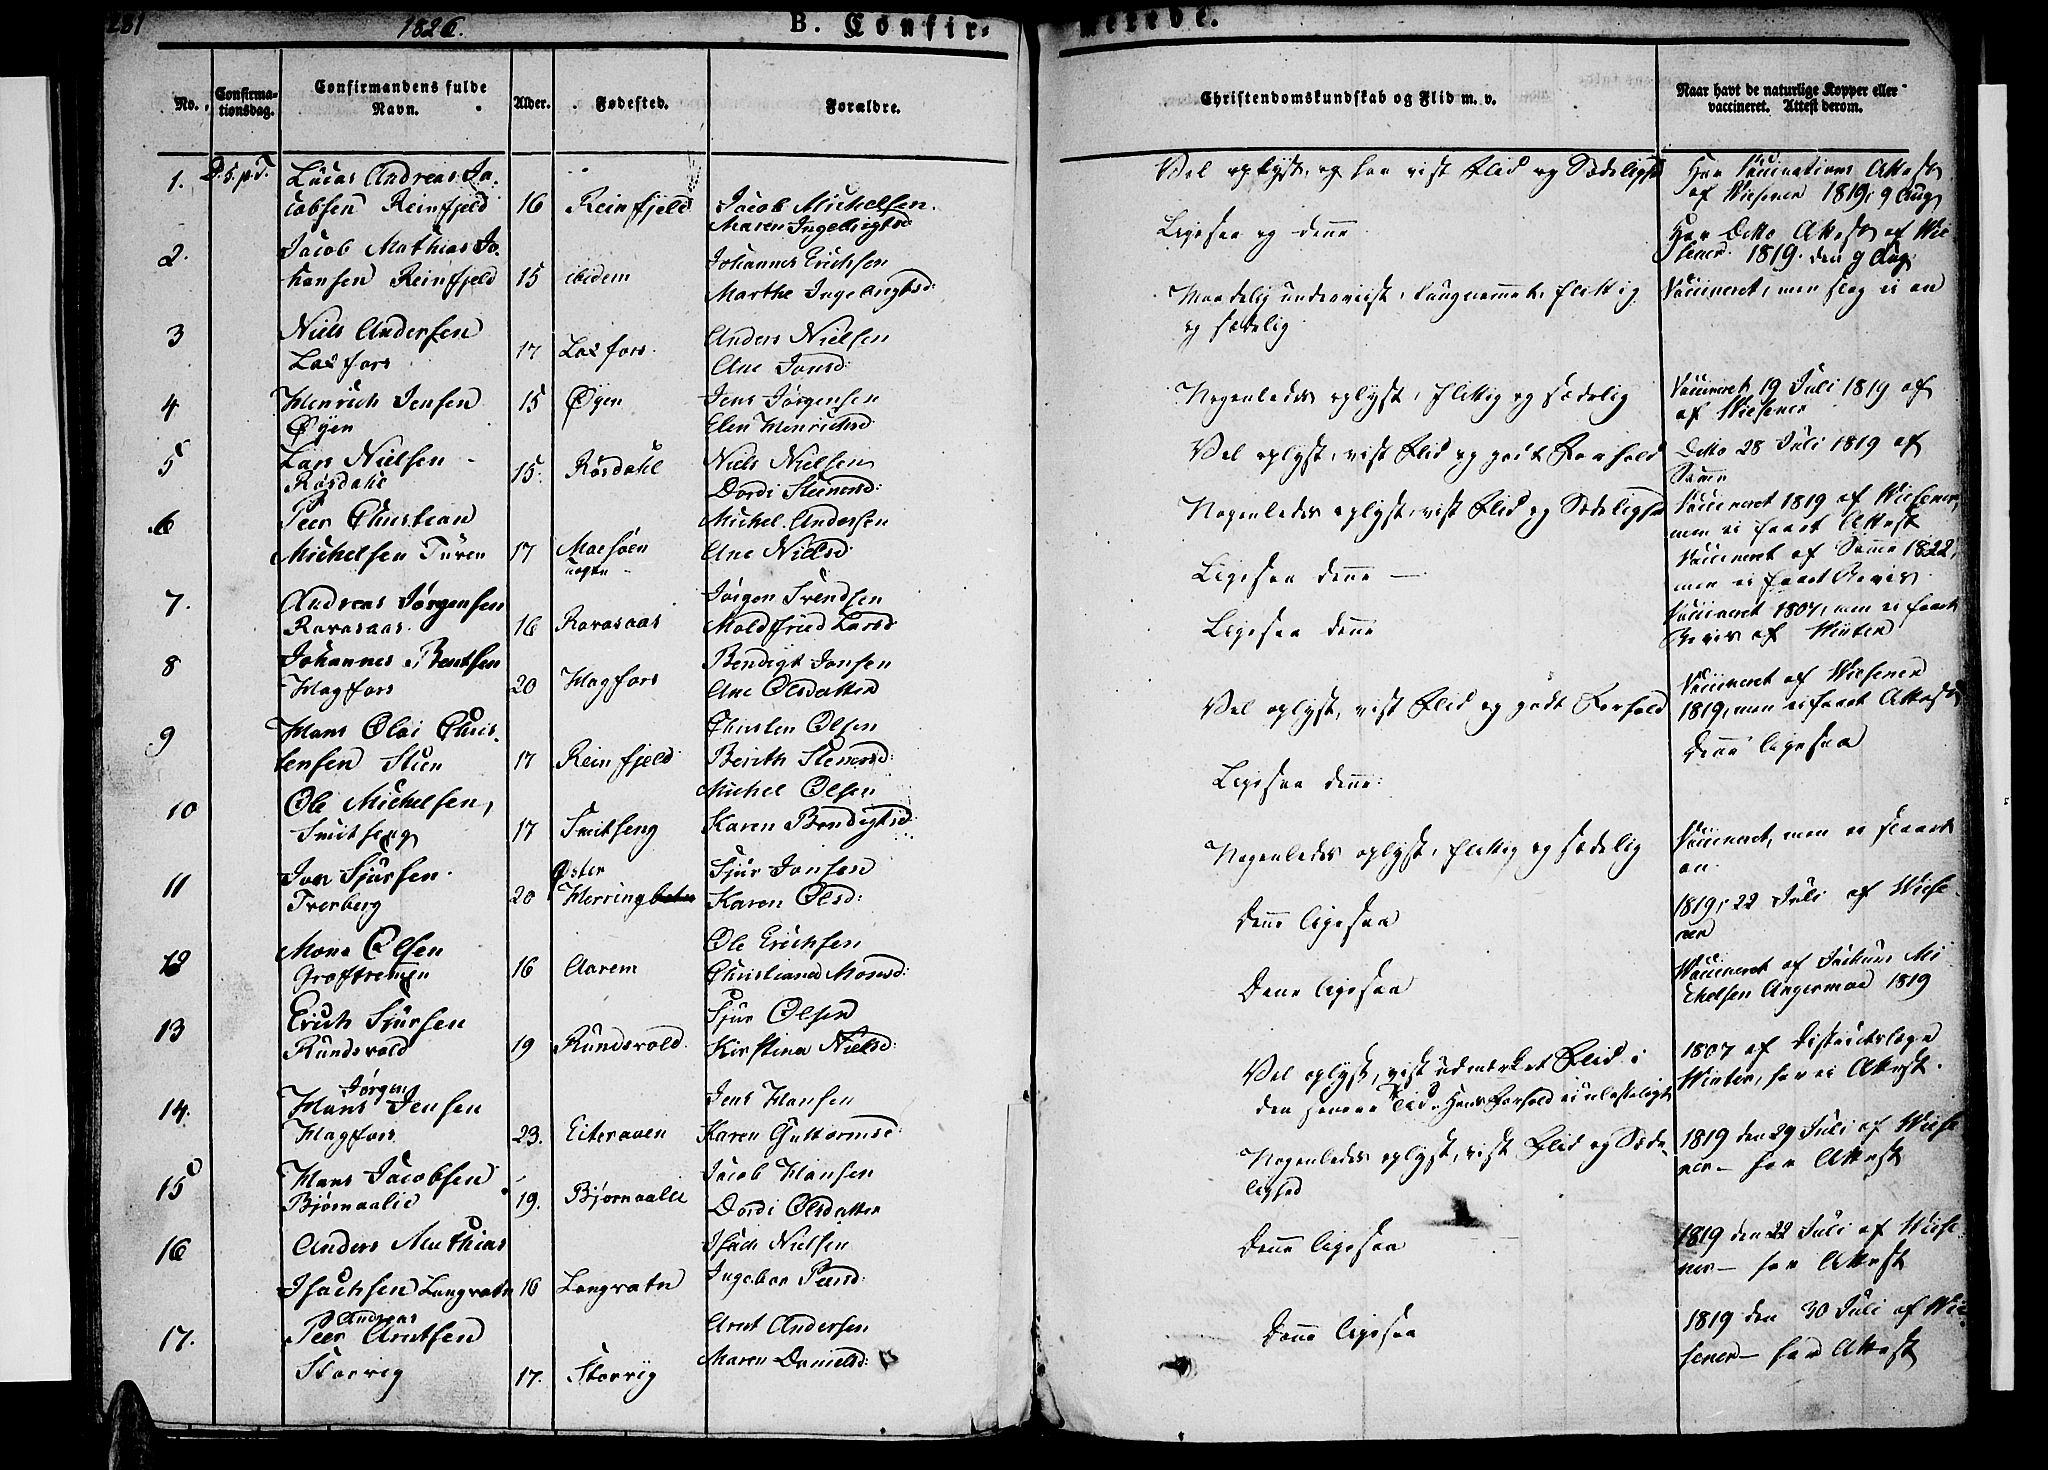 281 1826. B. Confir- merede.
No. Confirma-
tionsdag. Confirmandens fulde
Navn. Alder. Fødested. Forældre. Christendomskundskab og Flid m. v. Naar havt de naturlige Kopper eller
vaccineret. Attest derom.
1. D. 5. p. T. Lucas Andreas Ja-
cobsen Reinfjeld 16 Reinfjeld Jacob Michelsen
Maren Ingebrigtsd: Vel oplyst, og har vist Flid og Sædelighd Har Vaccinations Attest
af Wiesener 1819, 9 Aug
2. Jacob Mathias Jo-
hansen Reinfjeld 15 ibidem Johannes Erichsen
Marthe Ingebrigtsd: Ligesaa og denne Har Ditto Attest af Wie
sener 1819. den 9 Aug:
3 Niels Andersen
Laxfors 17 Laxfors Anders Nielsen
Ane Jonsd: Maadelig underviist, tungnemmet, flittig
og sædelig Vaccineret, men slog ei an
4 Henrich Jensen
Øyen 15 Øyen Jens Jørgensen
Elen Henrichsd: Nogenledes oplyst, flittig og sædelig Vaccineret 19 Juli 1819 af
af Wiesener
5 Lars Nielsen
Røsdahl 15. Røsdahl Niels Nielsen
Dordi Steenersd: Vel oplyst, vist Flid og godt Forhold Ditto 28 Juli 1819 af
Samme
6 Peer Christian
Michelsen Turen 17 Moesøen Michel Andersen
Ane Nielsd: Nogenledes oplyst, vist Flid og Sædelighed Vaccineret 1819 af Wiesener,
men ei faaet Attest
7. Andreas Jørgensen
Ravasaas 16 Ravasaas Jørgen Svendsen
Moldfried Larsd: Ligesaa denne Vaccineret af Samme 1822,
men ei faaet Bevis
8 Johannes Bentsen
Hagfors 20 Hagfors Bendigt Jonsen
Ane Olsdatter Ligesaa denne Vaccineret 1807, men ei faaet
Bevis af Winter
9 Hans Olai Chris-
tensen Stien 17 Reinfjeld Christen Olsen
Berith Stenersd: Vel oplyst, vist Flid og godt Forhold Vaccineret af Wiesener
1819, men ei faaet Attest
10 Ole Michelsen,
Smitseng 17 Smitseng Michel Olsen
Karen Bendigtsd: Ligesaa denne: Denne ligesaa
11 Jon Sjursen
Tverberg 20 Øster
Herring Sjur Jonsen
Karen Olsd: Nogenledes oplyst, flittig og sædelig Vaccineret, men ei slaaet
an.
12 Mons Olsen
16 Aarem Ole Erichsen
Christiana Monsd: Denne ligesaa 1819, 22 Juli af Wiese-
ner
13 Erich Sjursen
Rundsvold 19 Rundsvold Sjur Olsen
Kirstina Nielsd: Denne ligesaa Vaccineret af Mi
chelsen Angermoe 1819
14. Hans Jørgen Jensen
Hagfors 23. Eiteraaen Jens Hansen
Karen Guttormsd: Vel oplyst, vist udmærket Flid i
den senere Tid. Hans Forhold ei ulasteligt 1807 af Districtslæge
Winter, har ei Attest.
15 Hans Jacobsen
Bjørnaalie 19. Bjørnaalie Jacob Hansen
Dordi Olsdatter Nogenledes oplyst, vist Flid og Sæde-
lighed 1819 den 29 Juli af Wiese
ner – har Attest
16 Anders Mathias
Isachsen Langvatn 16 Langvatn Isach Nielsen
Ingebor Peersd: Denne ligesaa 1819 den 22 Juli af Wiese-
ner – har Attest
17. Peer Andreas Arntsen
Storvig 17. Storvig Arnt Andersen
Maren Danielsd: Denne ligesaa 1819 den 30 Juli af Wie-
sener – har Attest